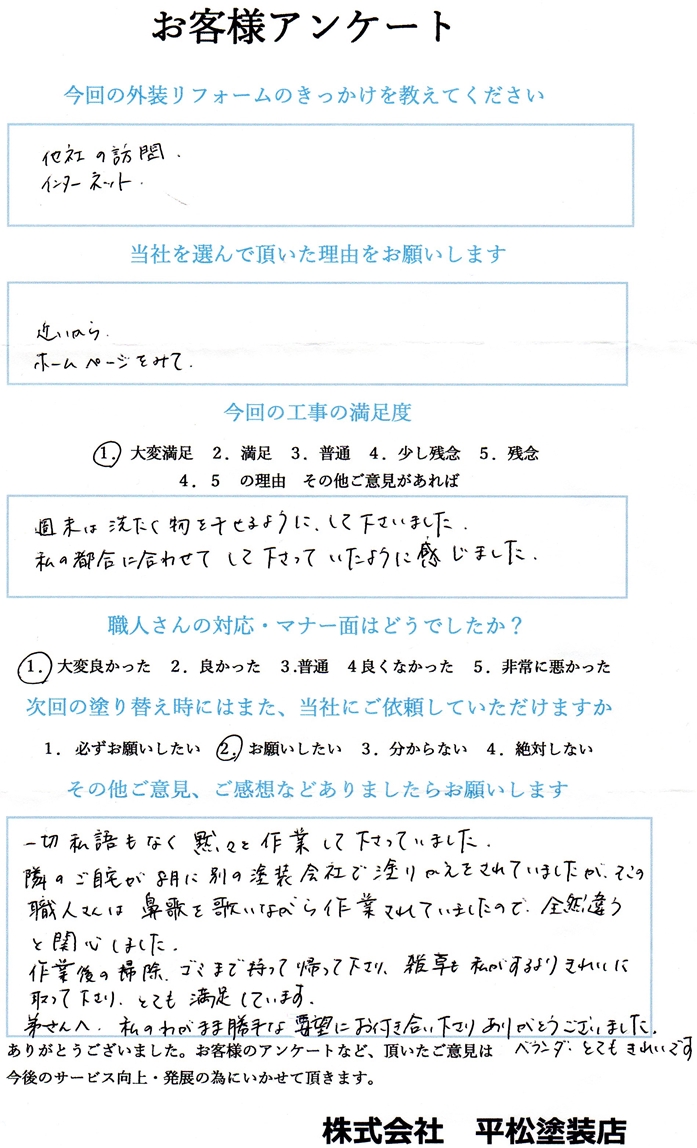 お客様アンケート
今回の外装リフォームのきっかけを教えてください
他社の訪問.
インターネット.
当社を選んで頂いた理由をお願いします
近いから.
ホームページをみて.
今回の工事の満足度
1. 大変満足 2. 満足 3. 普通 4. 少し残念 5. 残念
4. 5 の理由 その他ご意見があれば
週末は洗たく物を干せるように、して下さいました.
私の都合に合わせてして下さっていたように感じました.
職人さんの対応・マナー面はどうでしたか？
1. 大変良かった 2. 良かった 3.普通 4良くなかった 5. 非常に悪かった
次回の塗り替え時にはまた、当社にご依頼していただけますか
1. 必ずお願いしたい 2. お願いしたい 3. 分からない 4. 絶対しない
その他ご意見、ご感想などありましたらお願いします
一切私語もなく黙々と作業して下さっていました.
隣のご自宅が8月に別の塗装会社で塗りかえをされていましたが、そこの
職人さんは鼻歌を歌いながら作業されていましたので、全然違う
と関心しました.
作業後の掃除、ゴミまで持って帰って下さり、雑草も私がするよりきれいに
取って下さり、とても満足しています.
弟さんへ. 私のわがまま勝手な要望にお付き合い下さりありがとうございました.
ベランダ、とてもきれいです
ありがとうございました。お客様のアンケートなど、頂いたご意見は
今後のサービス向上・発展の為にいかせて頂きます。
株式会社 平松塗装店